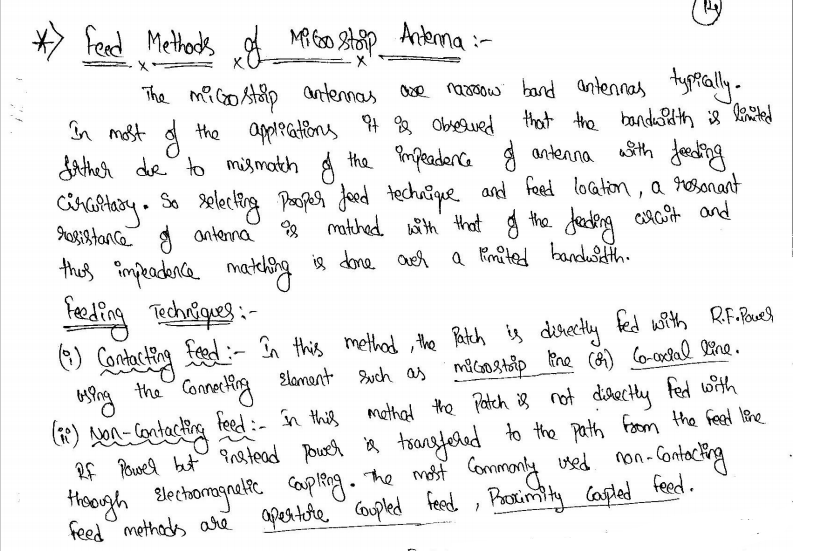 14
*) Feed Methods of Microstrip Antenna :-
The microstrip antennas are narrow band antennas typically.
In most of the applications it is observed that the bandwidth is limited
further due to mismatch of the impeadence of antenna with feeding
circuitary. So selecting proper feed technique and feed location, a resonant
resistance of antenna is matched with that of the feeding circuit and
thus impeadence matching is done over a limited bandwidth.
Feeding Techniques :-
(i) Contacting feed :- In this method, the Patch is directly fed with R.F. Power
using the Connecting element such as microstrip line (or) Co-axial line.
(ii) Non-Contacting feed :- In this method the Patch is not directly fed with
RF Power but instead Power is transfered to the path from the feed line
through electromagnetic coupling. The most commonly used non-contacting
feed methods are aperture coupled feed, Proximity coupled feed.